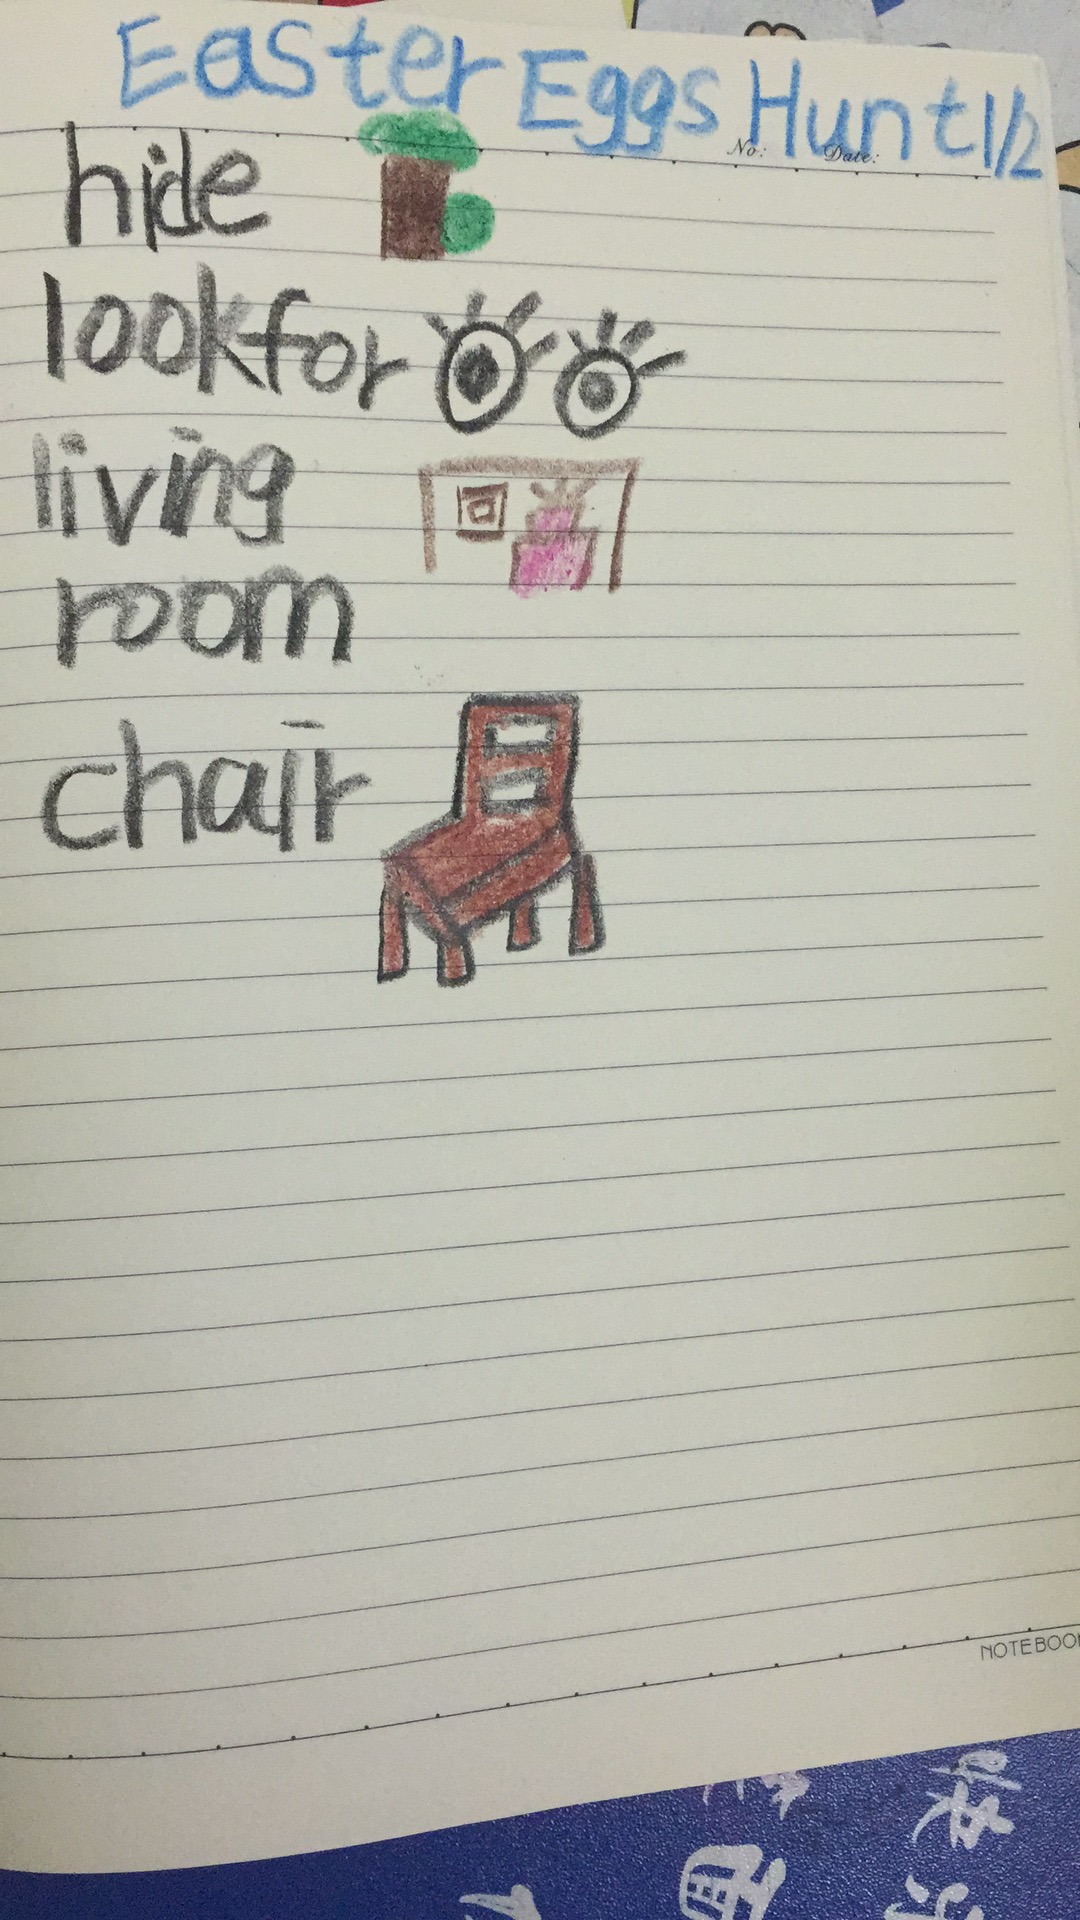 Easter Eggs Hunt 1/2
No: Date:
hide
look for
living
room
chair
NOTEBOOK